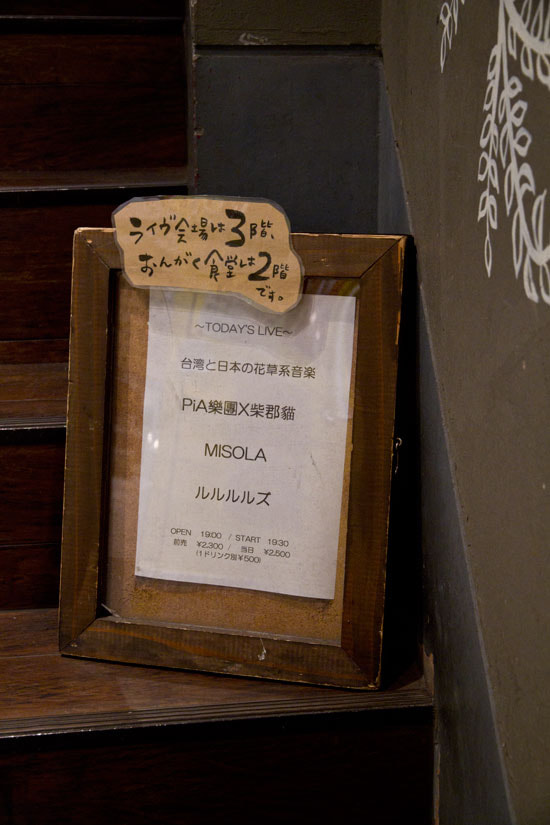 ライヴ会場は3階、
おんがく食堂は2階
です。
~TODAY'S LIVE~
台湾と日本の花草系音楽
PiA樂團X柴郡貓
MISOLA
ルルルルズ
OPEN 19:00 / START 19:30
前売 ¥2,300 / 当日 ¥2,500
(1ドリンク別¥500)